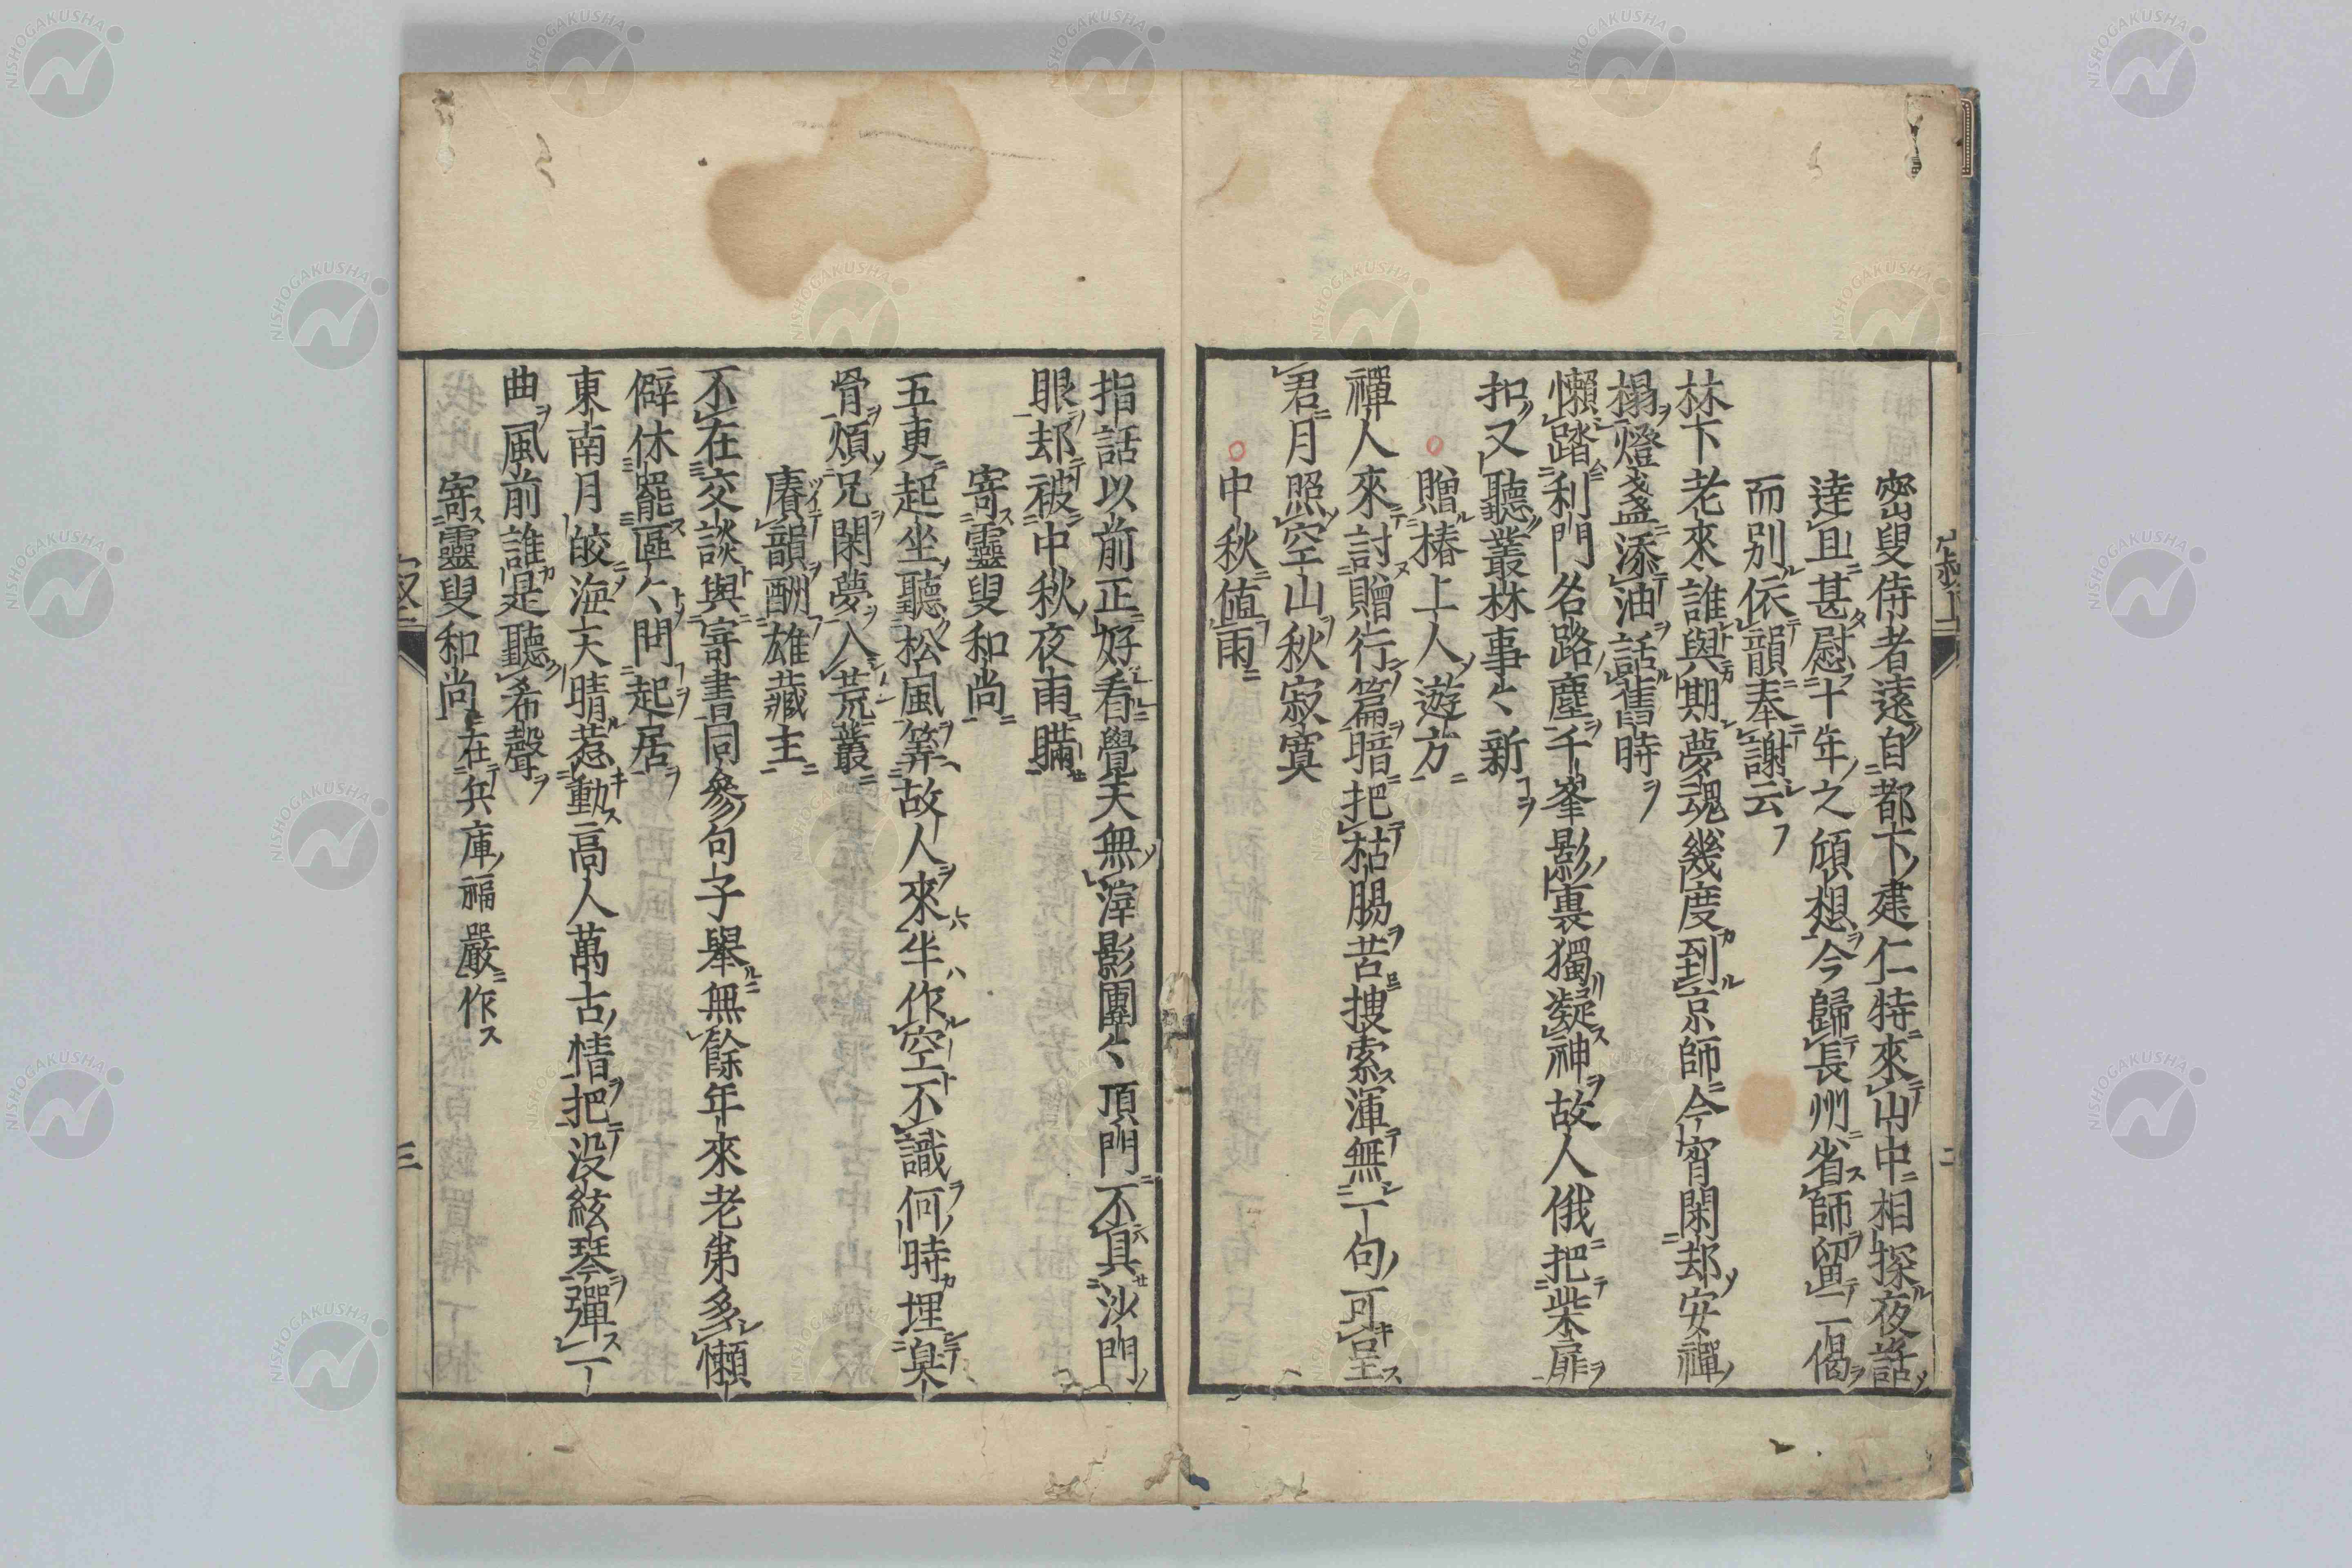 密叟侍者遠自都下建仁特來山中相探夜話
達且甚慰十年之頎想今歸長州省師留一偈
而別依韻奉謝云
林下老來誰與期夢魂幾度到京師今宵閑却安禪
榻燈盞添油話舊時
懶踏利門名路塵千峯影裏獨凝神故人俄把柴扉
扣又聽叢林事〻新
贈椿上人遊方
禪人來討贈行篇暗把枯腸苦搜索渾無一句可呈
君月照空山秋寂寞
中秋値雨
指話以前正好看覺天無滓影團〻頂門不具沙門
眼却被中秋夜雨瞞
寄靈叟和尚
五更起坐聽松風筭故人來半作空不識何時埋臭
骨煩兄閑夢入荒叢
賡韻酬雄藏主
不在交談與寄書同參句子舉無餘年來老弟多懶
僻休罷區〻問起居
東南月皎海天晴惹動高人萬古情把没絃琴彈一
曲風前誰是聽希聲
寄靈叟和尚在兵庫福嚴作
三
NISHOGAKUSHA